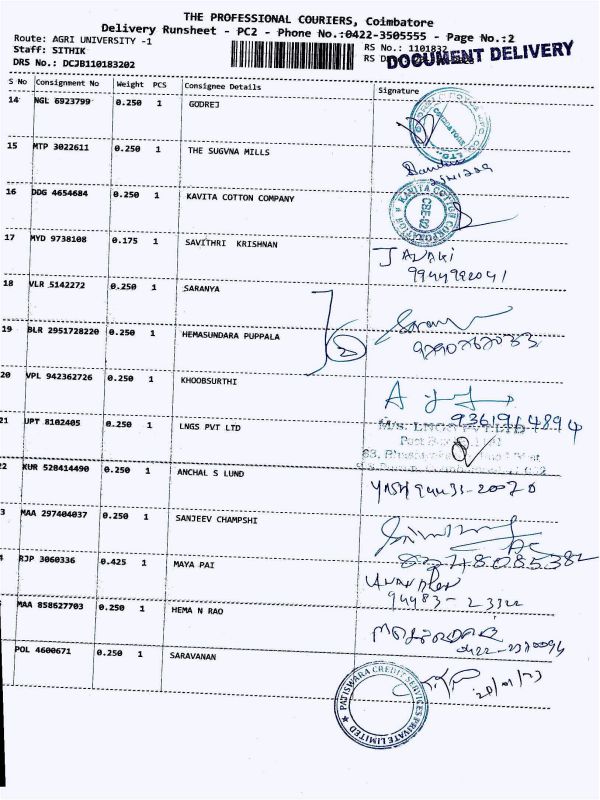 THE PROFESSIONAL COURIERS, Coimbatore
Delivery Runsheet - PC2 - Phone No.:0422-3505555 - Page No.:2
Route: AGRI UNIVERSITY -1
RS No.: 1101832
Staff: SITHIK
RS D
DOCUMENT DELIVERY
DRS No.: DCJB110183202
S No Consignment No Weight PCS Consignee Details Signature
14 NGL 6923799 0.250 1 GODREJ
COIMBATORE
LTD.
15 MTP 3022611 0.250 1 THE SUGVNA MILLS
16 DDG 4654684 0.250 1 KAVITA COTTON COMPANY
KAVITA COTTON CORPORATION
CBE-02
17 MYD 9738108 0.175 1 SAVITHRI KRISHNAN
JANAKI
9944992041
18 VLR 5142272 0.250 1 SARANYA
2
19 BLR 2951728220 0.250 1 HEMASUNDARA PUPPALA
20 VPL 942362726 0.250 1 KHOOBSURTHI
9361914894
21 UPT 8102405 0.250 1 LNGS PVT LTD
M/S. LNGS PVT LTD
22 KUR 528414490 0.250 1 ANCHAL S LUND
3 MAA 297404037 0.250 1 SANJEEV CHAMPSHI
4 RJP 3060336 0.425 1 MAYA PAI
MAA 858627703 0.250 1 HEMA N RAO
POL 4600671 0.250 1 SARAVANAN
PATISWARA CREDIT SERVICES PRIVATE LIMITED